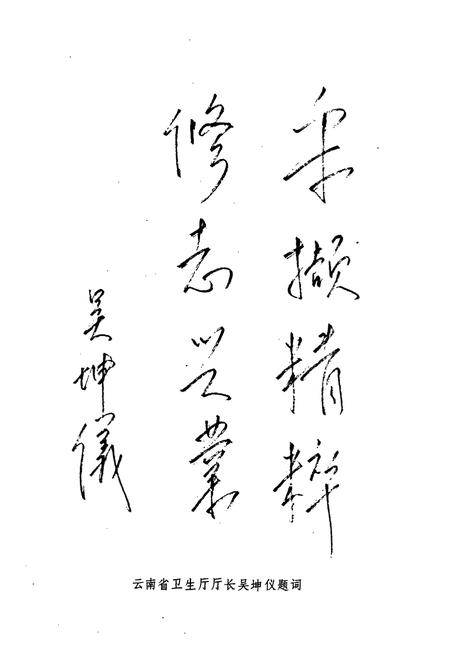 采撷精粹
修志兴業
吴坤儀
云南省卫生厅厅长吴坤仪题词